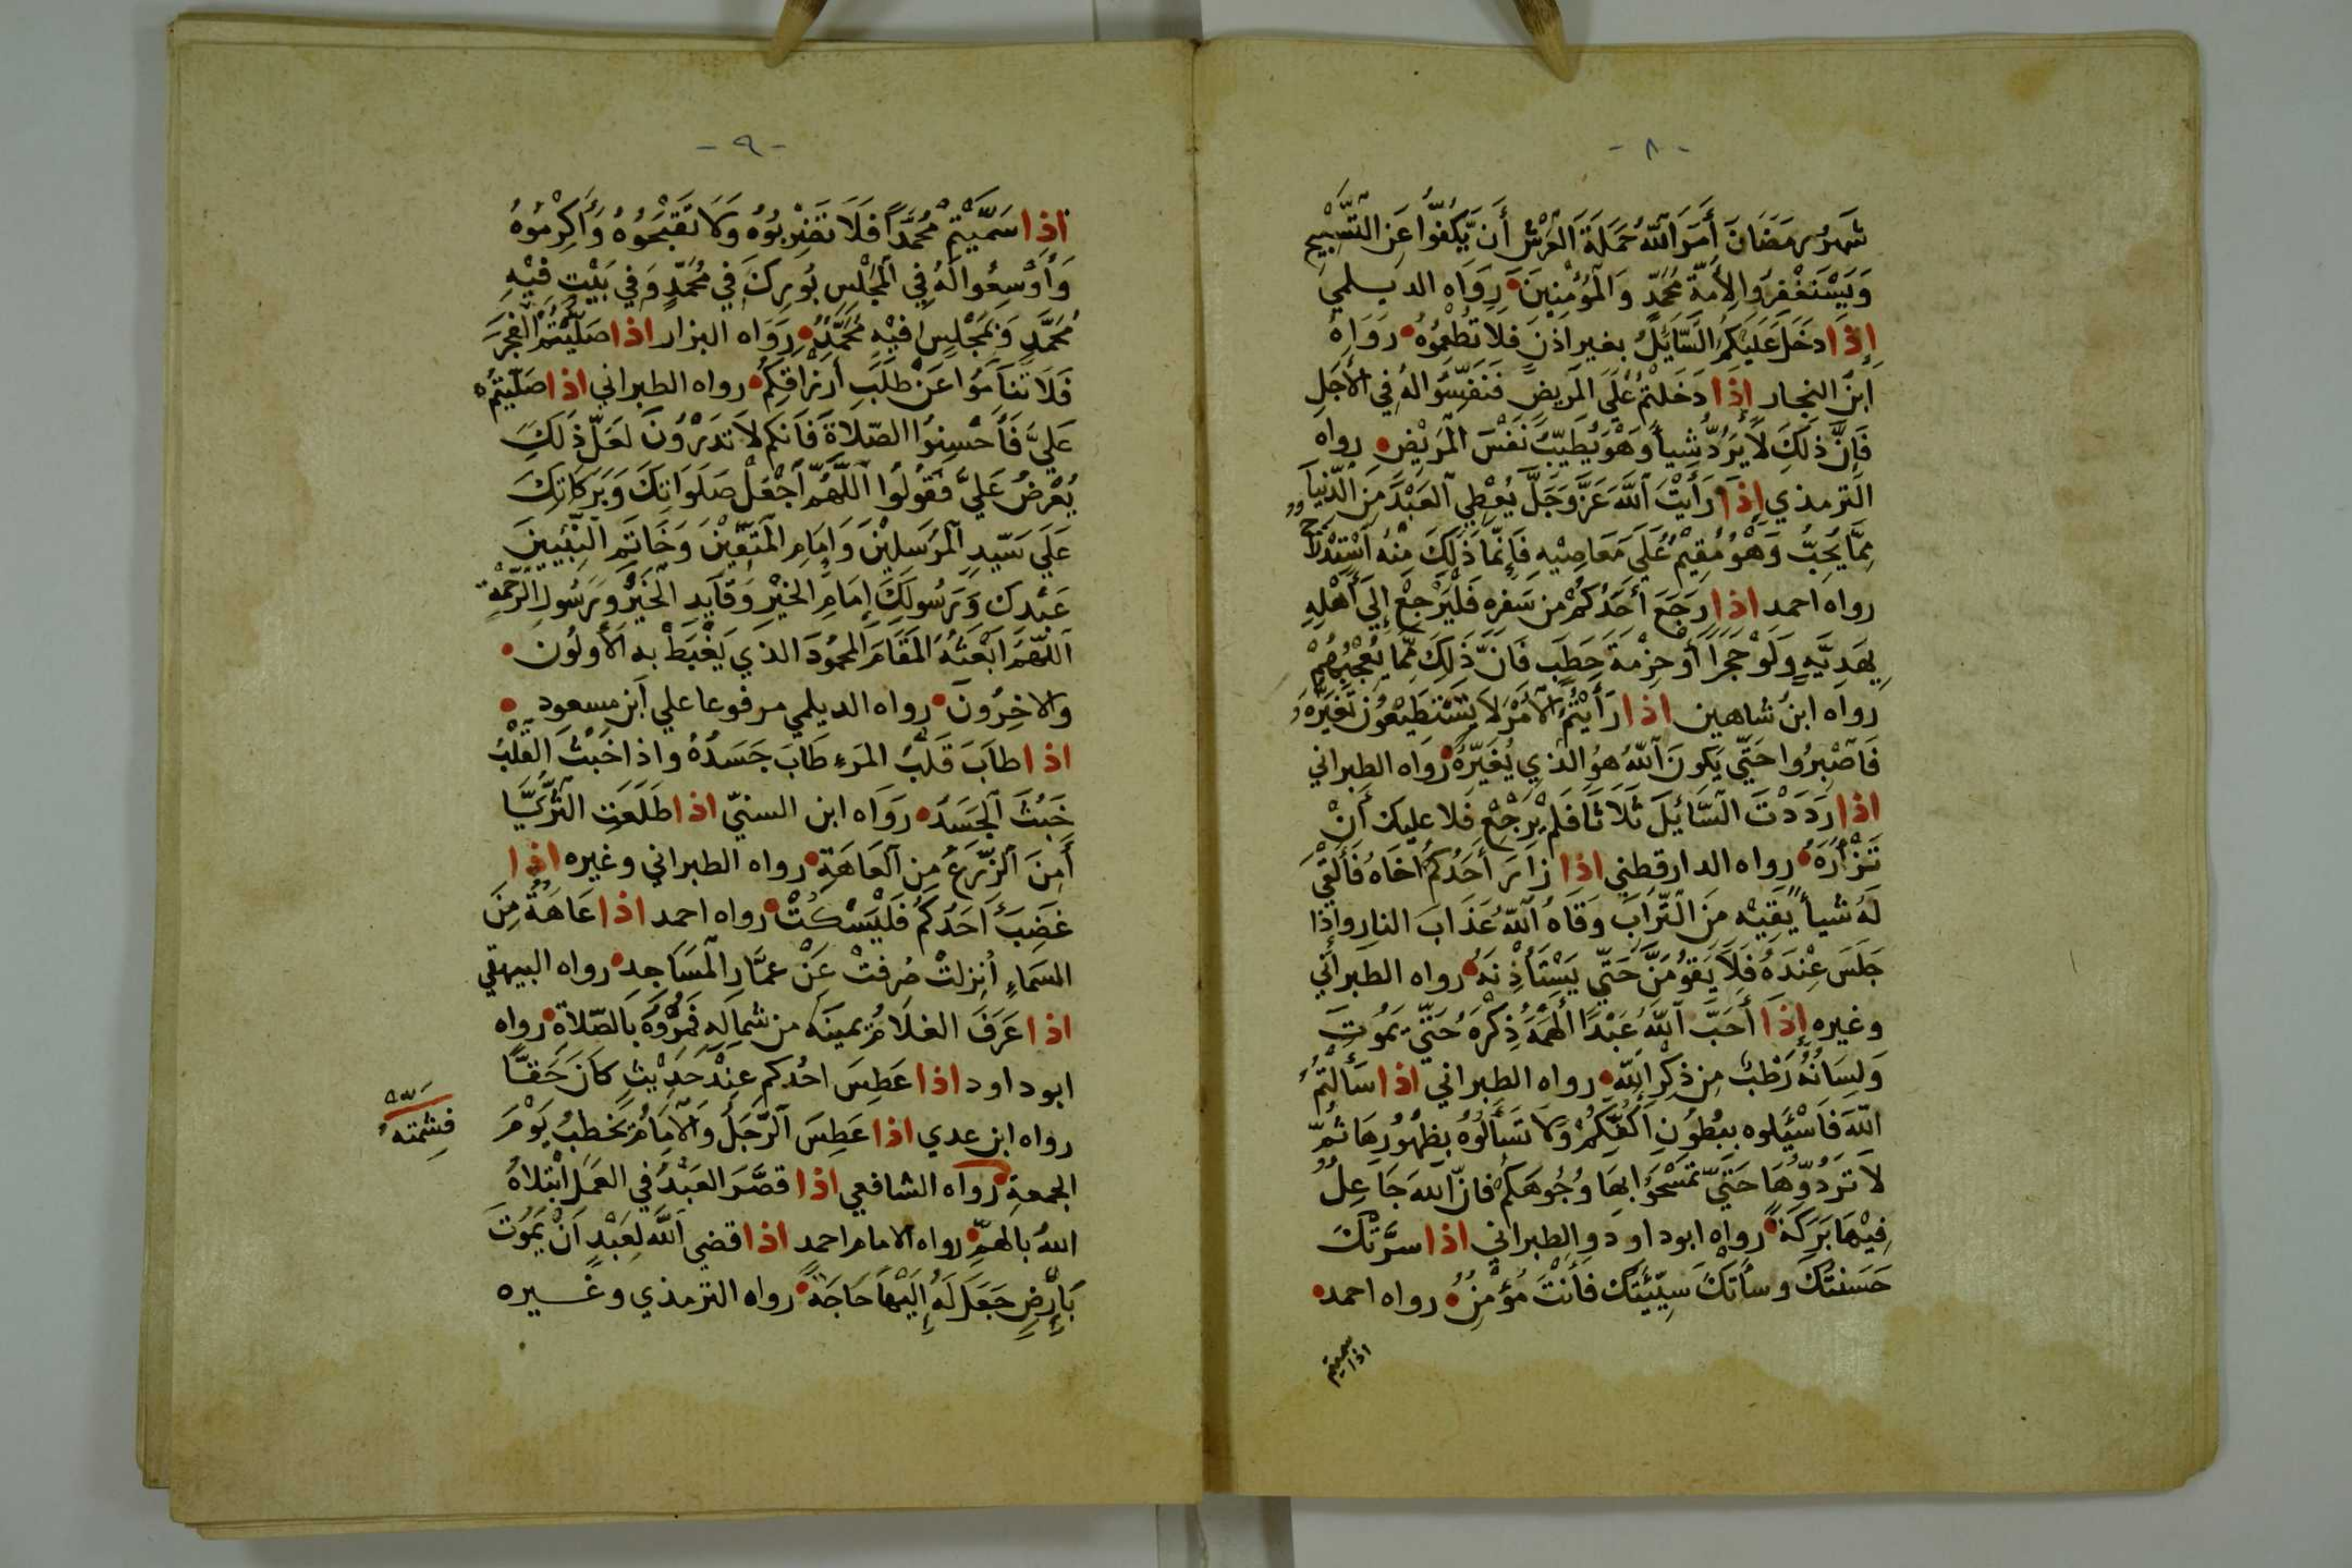 - ٨ -
شَهرُ رمَضَانَ أَمَرَ اللّٰهُ حَمَلَةَ العَرْشِ أَن يَّكُفُّوا عَنِ التَّسْبِيحِ
وَيَسْتَغْفِرُوا لِأُمَّةِ مُحَمَّدٍ وَالمُؤمِنِينَ رَوَاه الديلمي
إِذَا دَخَلَ عَلَيْكُمُ السَّائِلُ بغير اذْنَ فلا تُطْعِمُوُه رَوَاهُ
ابنُ النجار اِذا دَخَلْتُمْ عَلَى المَرِيضِ فَنَفِّسُوا لهُ فِي الأَجَلِ
فَإِنَّ ذلِكَ لاَ يَرُدُّ شياً وَهْوَ يُطَيِّبُ نَفْسَ المَرِيْضِ رواه
الترمذي اذَا رَأيْتَ اللّٰهَ عَزَّ وَجَلَّ يُعْطِي العَبْدَ مِنَ الدُّنيَا
مِمَّا يُحِبُّ وَهْوُ مُقِيْمٌ عَلَى مَعَاصِيْهِ فَإِنَّمَا ذَلِكَ مِنْهُ اسْتِدْلاجٌ
رواه احمد اذا رَجَعَ أَحَدُكُمْ من سَفَرِه فَلْيَرْجِعْ إِلَى أَهْلِهِ
بِهَدِيَّةٍ وَلَوْ حَجَرًا أَوْ حِزْمَةَ حِطَبٍ فَانَّ ذَلِكَ مِمَّا يُعْجِبُهُمْ
رواه ابنُ شاهين اذا رَأَيْتُمُ الأَمْرَ لاَ يَسْتَطِيْعُونَ تَغَيِّرَهُ
فَاصْبِرُوا حَتّي يَكونَ اللّٰهُ هوُ الذِي يُغَيّرُهُ رَوَاه الطبراني
اذا رَدَدْتَ السَّائِلَ ثَلَاثاً فلم يَرْجِعْ فَلا عليك أَنْ
تَزْأَرَهُ رواه الدارقطني اذا زارَ أَحَدُكُم أَخَاهُ فَأَلْقَي
لَهُ شياً يَقِيْهِ مِنَ التّرابِ وَقَاهُ اللّٰهُ عَذَابَ النارِ واذا
جَلَسَ عِنْدَهُ فَلاَ يَقُوُمَنَّ حَتَّى يَسْتَأْذِنَهُ رواه الطبراني
وغيره إِذَا أَحَبَّ اللّٰهُ عَبْدًا أَلْهَمَهُ ذِكْرَهُ حَتّي يَمُوتَ
وَلِسَانُهُ رَطْبٌ مِن ذِكْرِ اللّٰهِ رواه الطبراني اذا سَأَلْتُمُ
اللّٰهَ فَاسْئَلوه بِبُطُونِ أَكُفِّكُمْ وَلاَ تَسْأَلُوُهُ بِظُهُورِهَا ثُمَّ
لاَ تَرُدُّوهَا حَتَّى تمْسَحُوا بِهَا وُجُوهَكُمْ فانّ اللّٰهَ جَاعِلٌ
فِيْهَا بَرَكَةً رواه ابوداود والطبراني اذا سرَّتْكَ
حَسَنتُكَ وسأَتْكَ سَيِّئَتُكَ فأَنْتَ مُؤْمِنٌ رواه احمد
اذا سميتم
- ٩ -
اذا سَمَّيْتُمْ مُحُمَّداً فَلاَ تَضْرِبُوُه وَلاَ تُقَبِّحُوُهُ وَأَكرِمُوُهُ
وَأَوْسِعُوا لَهُ فِي المَجْلِسِ بُورِكَ فِي مُحَمّدٍ وَفي بَيْتٍ فِيْهِ
مُحَمَّدٍ وَمَجْلِسٍ فِيْهِ مُحَمَّدٌ رَوَاه البزار اذا صَلَّيْتُمُ الفَجْرَ
فَلاَ تَنَامُوا عَنْ طَلَبِ أَرْزَاقِكُمْ رواه الطبراني اذا صَلّيتُمْ
عَلَيَّ فَأَحْسِنُوا الصّلاَةَ فَاَنكم لاَ تدَرُوْنَ لَعَلّ ذَلكَ
يُعْرَضُ عَلَيَّ فَقُولُوا اللَّهُمَّ اجْعَلْ صَلَوَاتِكَ وَبَرَكاتِكَ
عَلَي سَيّدِ المُرَسلِيْنَ وَإِمَامِ المُتّقِيْنَ وَخَاتِمِ النَّبِيّينَ
عَبْدِكَ وَرَسُولِكَ إِمَامِ الخَيْرِ وَقَآيِدِ الخَيْرِ وَرَسُولِ الرَّحْمَةِ
اللّهَمَّ ابْعَثْهُ المَقَامَ المحمُودَ الذي يَغْبَطُ بِهِ الأَولُونَ
وَالاخِرُونَ رواه الديلمي مرفوعا علي ابن مسعود
اذا طَابَ قَلْبُ المَرءِ طَابَ جَسَدُهُ واذا خَبُثَ القَلْبُ
خَبُثَ الجَسَدُ رَوَاه ابن السنيّ اذا طَلَعَتِ الثُّرَيَّا
أَمِنَ الزَّرْعُ مِنَ العَاهَةِ رواه الطبراني وغيره اذا
غَضِبَ أَحَدُكُم فَلْيَسْكُتْ رواه احمد اذا عَاهَةٌ مِنَ
السَمَاءِ أُنِزلتْ صُرِفتْ عَنْ عمَّارِ المَسَاجِدِ رواه البيهقي
اذا عَرَفَ الغلَامُ يمينَه من شمِالِهِ فَمُرُوُهُ بِالصّلاَةِ رواه
ابوداود اذا عَطِسَ احُدكم عِنْدَ حَدِيْثٍ كانَ حَقًّا
رواه ابن عدي اذا عَطِسَ الرّجَلُ وَالاِمَامُ يَخطبُ يَوْمَ
فشَمّته
الجمعةِ رواه الشافعي اذا قصَّرَ العَبْدُ في العَمَلِ ابْتَلاَهُ
اللّٰهُ بالهَمِّ رواه الامام احمد اذا قضي اللّٰه لِعَبْدٍ اَنْ يَمُوتَ
بَأَرْضٍ جَعَلَ لَهُ إِلَيْهَا حَاجَةً رواه الترمذي وغيره